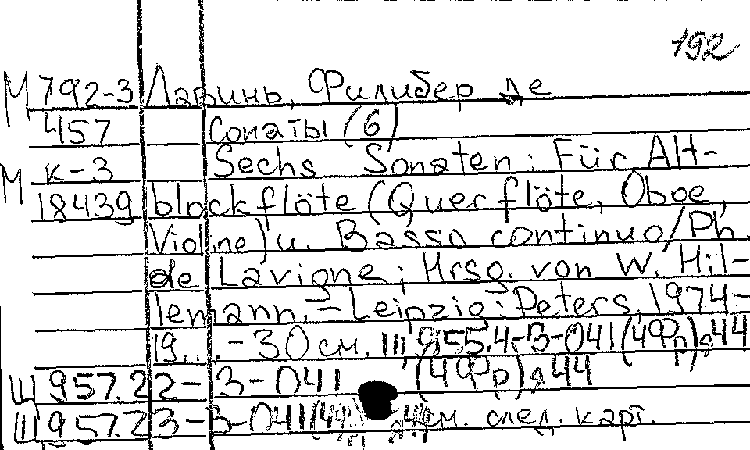 192
М 792-3 Лавинь, Филибер де
457 Сонаты (6)
М К-3 Sechs Sonaten: Für Alt-
18439 blockflöte (Querflöte, Oboe,
Violine) u. Basso continuo/Ph.
de Lavigne; Hrsg. von W. Hil-
lemann. – Leipzig: Peters, 1974–
19... – 30 см. Ш 955.4-3-041 (4Фр) я44
Ш 957.22-3-041 (4Фр) я44
Ш 957.23-3-041 см. след. карт.